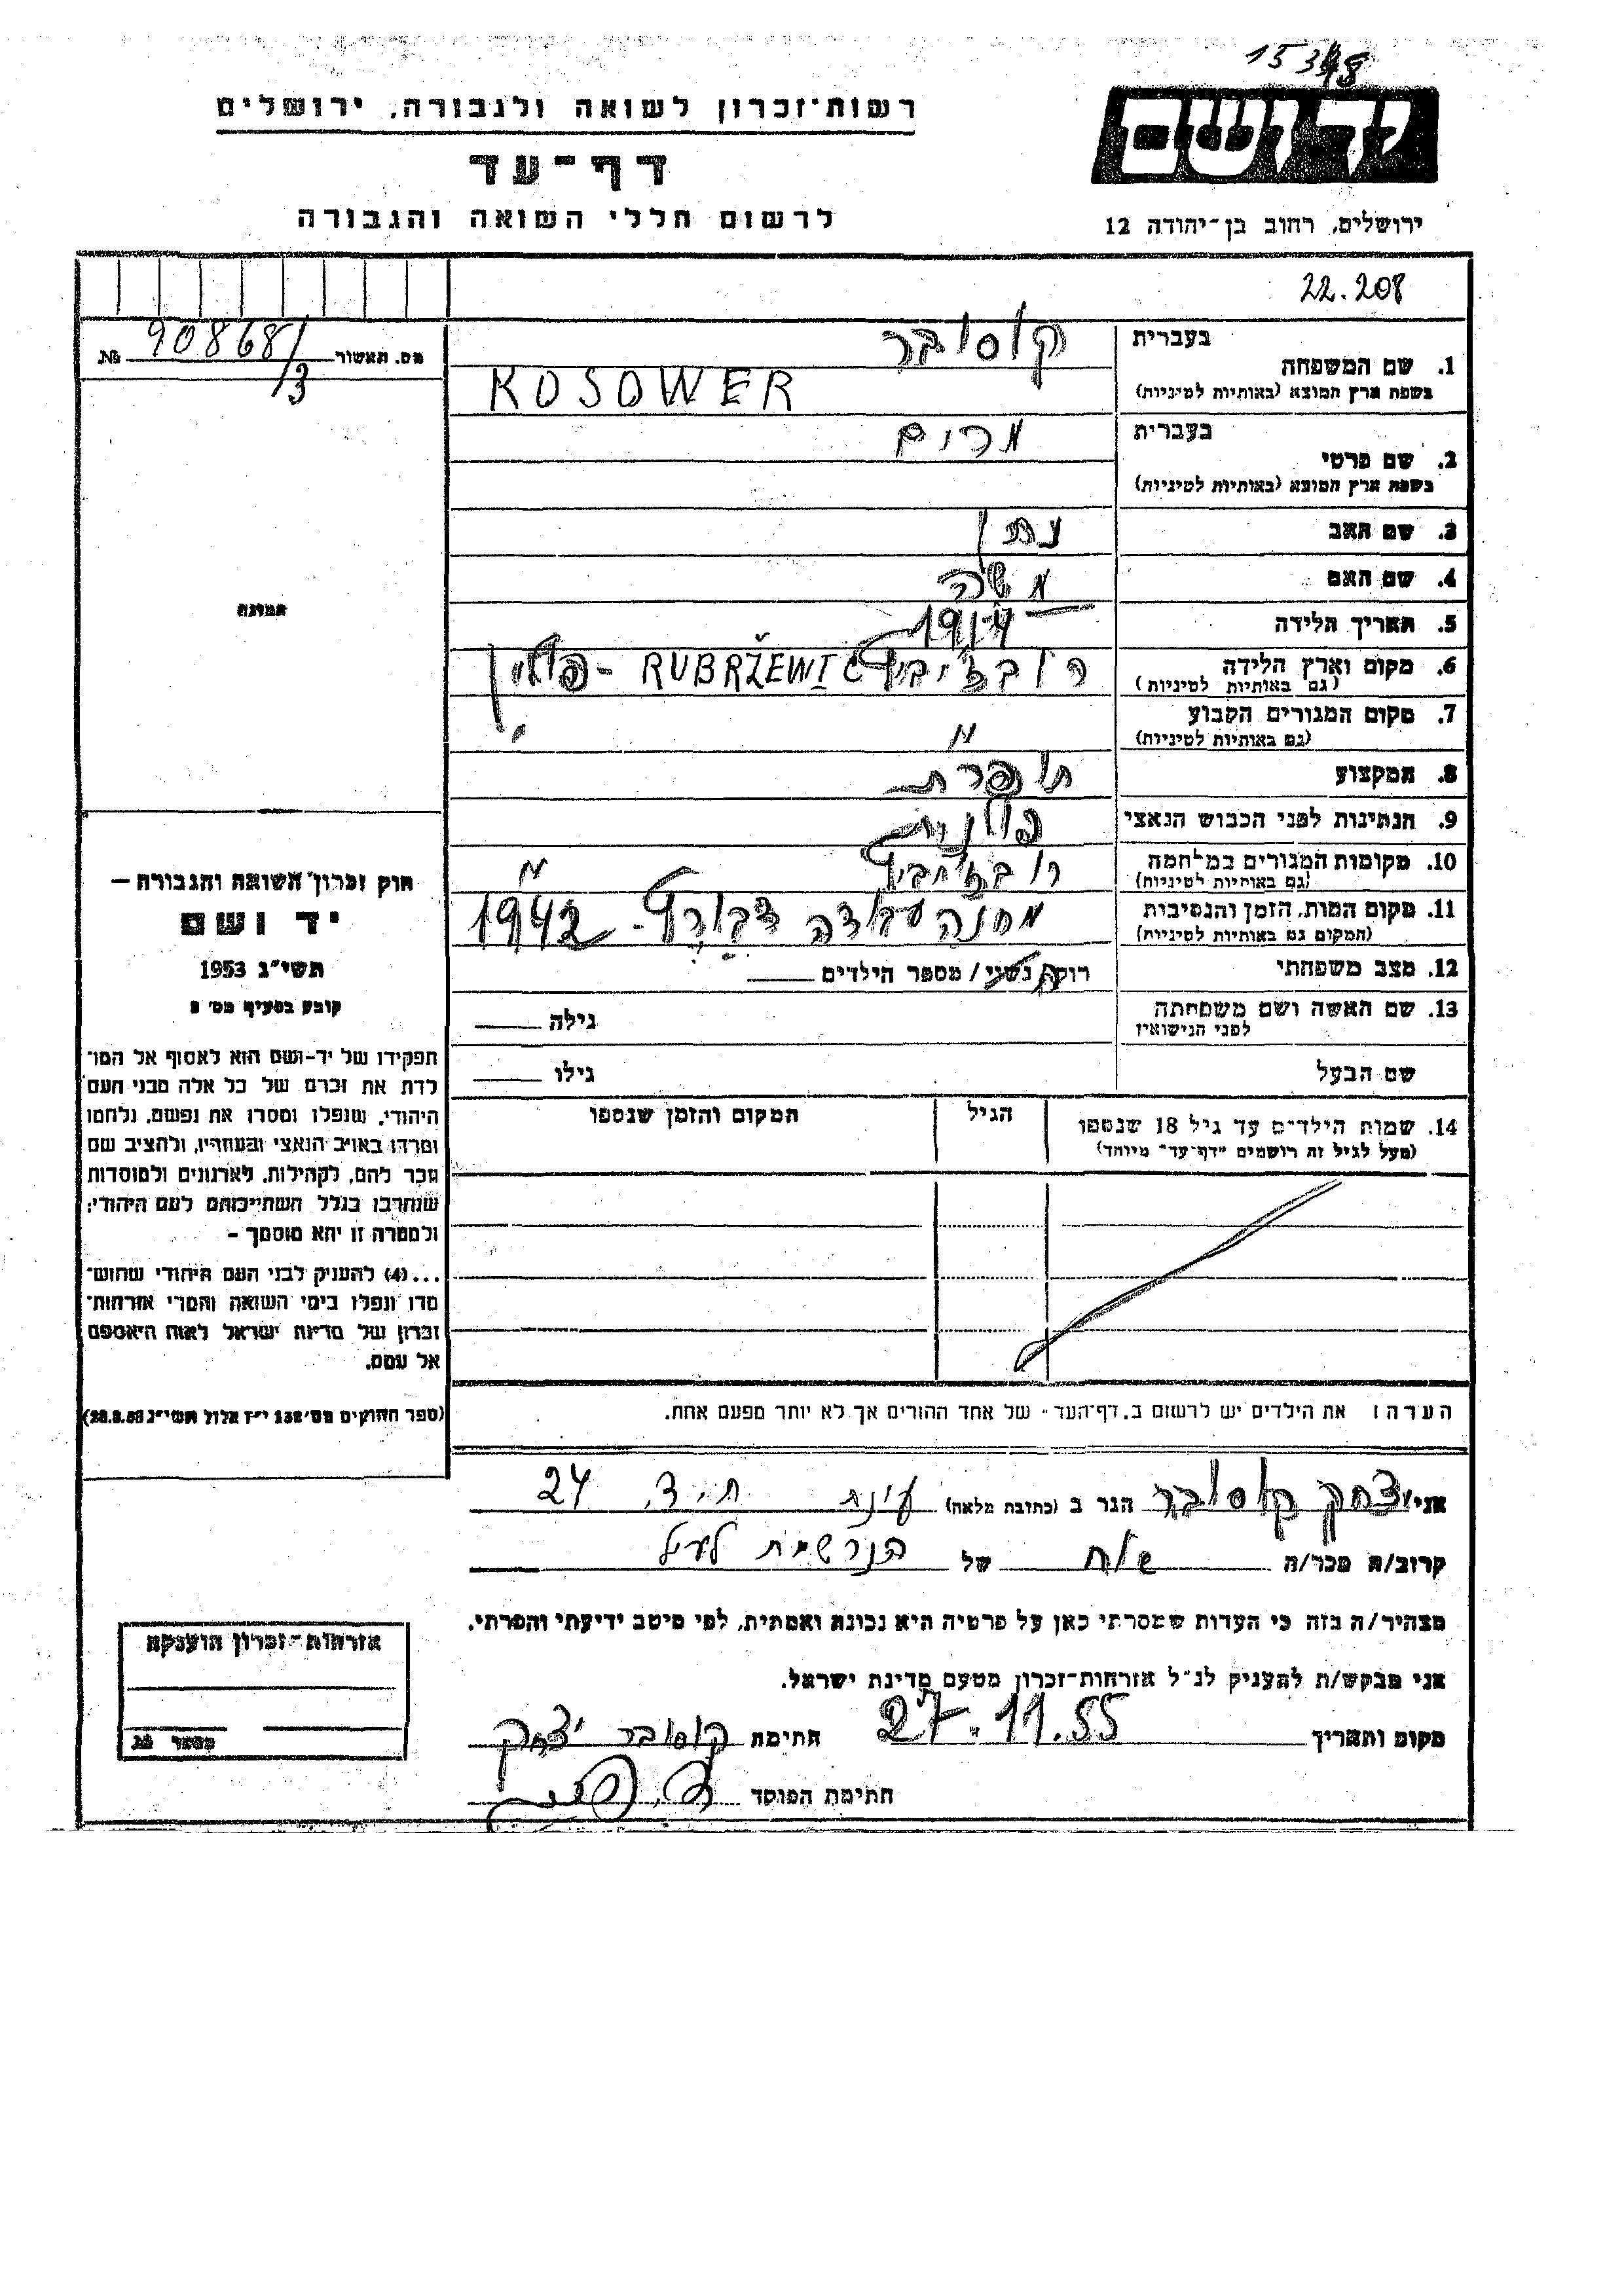 15348
יד ושם
רשות־זכרון לשואה ולגבורה, ירושלים
דף־עד
לרשום חללי השואה והגבורה
ירושלים, רחוב בן־יהודה 12
22.208
מס. תאשור 90868/3 №
1. שם המשפחה בעברית קוסובר
בשפת ארץ המוצא (באותיות לטיניות) KOSOWER
2. שם פרטי בעברית מרים
בשפת ארץ המוצא (באותיות לטיניות)
3. שם האב נתן
4. שם האם משה
5. תאריך הלידה
6. מקום וארץ הלידה (גם באותיות לטיניות) רובז'יביץ RUBRŻEWIC - פולין
7. מקום המגורים הקבוע (גם באותיות לטיניות) "
8. המקצוע תופרת
9. הנתינות לפני הכבוש הנאצי פולנית
10. מקומות המגורים במלחמה (גם באותיות לטיניות)
11. מקום המות, הזמן והנסיבות (המקום גם באותיות לטיניות) מחנה עבודה דבורץ - 1942
12. מצב משפחתי רוק/ה נשוי / מספר הילדים
13. שם האשה ושם משפחתה לפני הנישואין גילה
שם הבעל גילו
14. שמות הילדים עד גיל 18 שנספו
(מעל לגיל זה רושמים "דף־עד" מיוחד)
הגיל
המקום והזמן שנספו
תמונה
חוק זכרון השואה והגבורה —
יד ושם
תשי"ג 1953
קובע בסעיף מס' 2
תפקידו של יד-ושם הוא לאסוף אל המו־
לדת את זכרם של כל אלה מבני העם
היהודי, שנפלו ומסרו את נפשם, נלחמו
ומרדו באויב הנאצי ובעוזריו, ולהציב שם
וזכר להם, לקהילות, לארגונים ולמוסדות
שנחרבו בגלל השתייכותם לעם היהודי;
ולמטרה זו יהא מוסמך –
...(4) להעניק לבני העם היהודי שהוש־
מדו ונפלו בימי השואה והמרי אזרחות־
זכרון של מדינת ישראל לאות היאספם
אל עמם.
(ספר החוקים מס' 132 י"ז אלול תשי"ג 28.8.53)
הערה: את הילדים יש לרשום ב"דף־העד" של אחד ההורים אך לא יותר מפעם אחת.
אני יצחק קוסובר הגר ב (כתובת מלאה) עינת ת.ד. 24
קרוב/ה מכר/ה של הנרשמת לעיל
מצהיר/ה בזה כי העדות שמסרתי כאן על פרטיה היא נכונה ואמתית, לפי מיטב ידיעתי והכרתי.
אני מבקש/ת להעניק לנ"ל אזרחות־זכרון מטעם מדינת ישראל.
מקום ותאריך 27.11.55 חתימת קוסובר יצחק
חתימת הפוקד
אזרחות־זכרון הוענקה
מספר